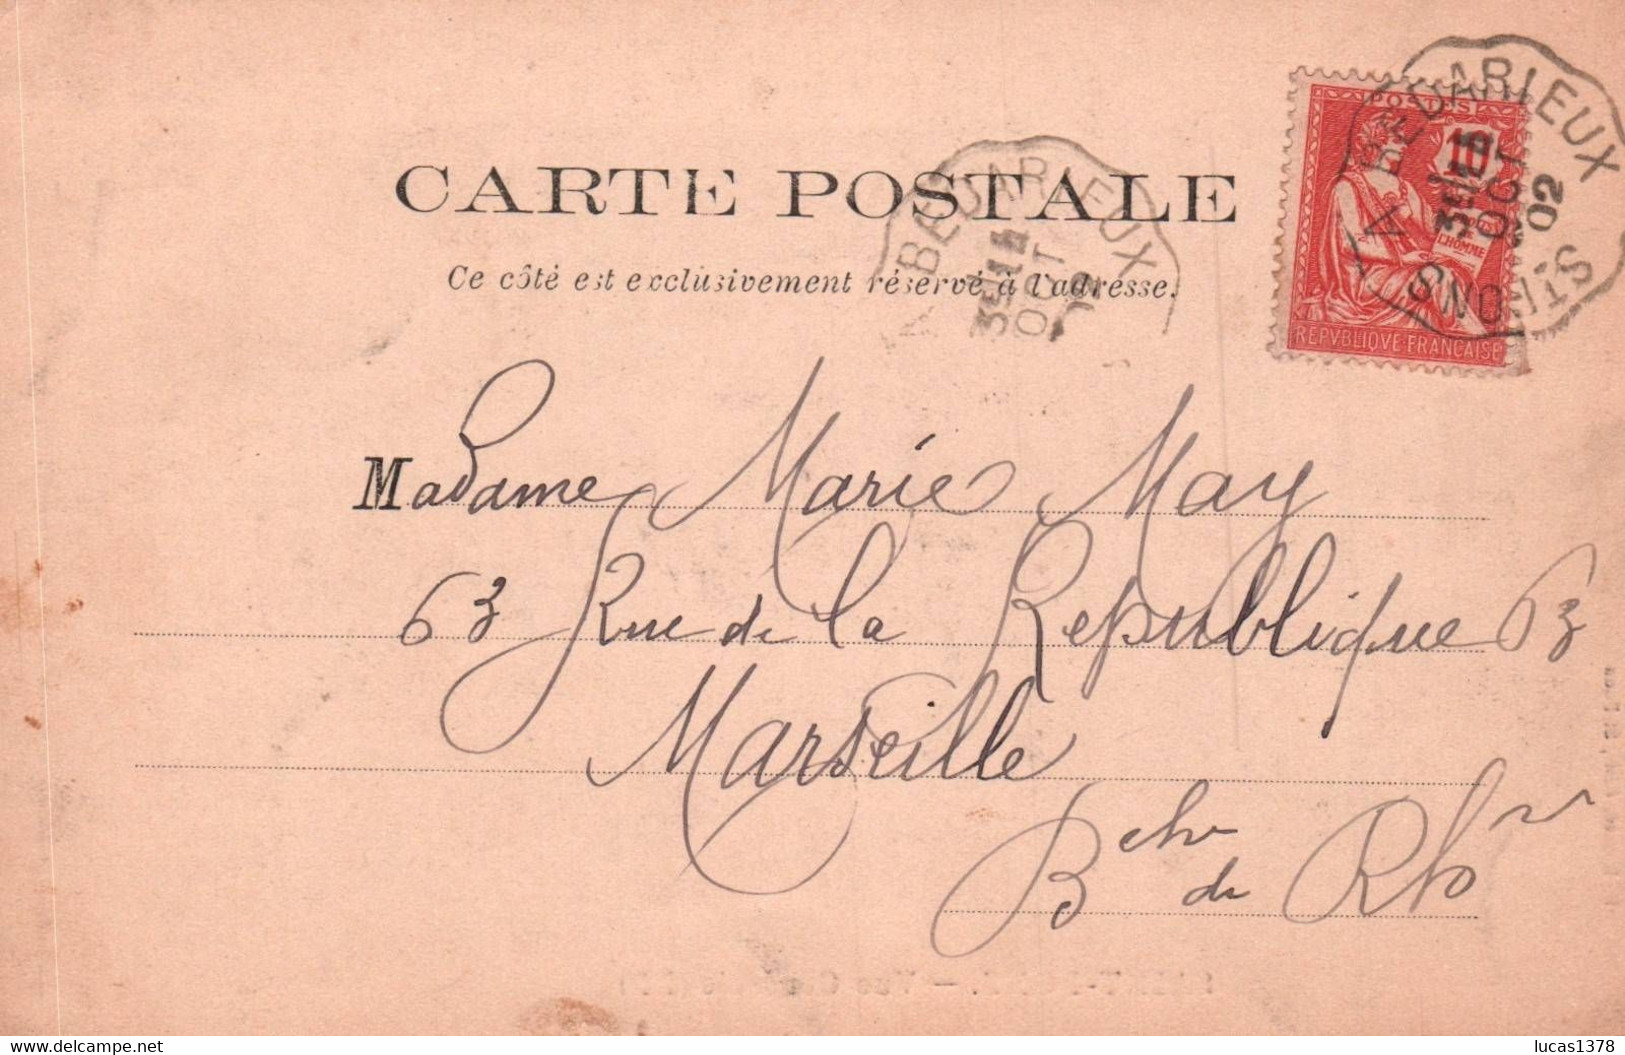 BEDARIEUX
OCT
02
POSTES
10
L'HOMME
REPVBLIQVE FRANÇAISE
BEDARIEUX
OCT
02
CARTE POSTALE
Ce côté est exclusivement réservé à l'adresse.
Madame Marie May
63 Rue de la Republique 63
Marseille
Bch de Rh
www.delcampe.net
lucas1378